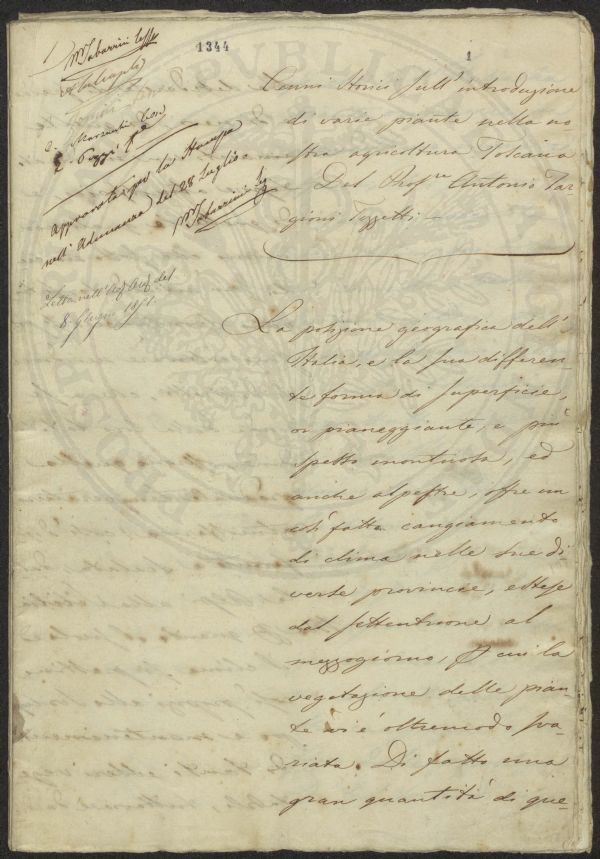 1344
1
Mo Tabarrini
Approvata per la Stampa
nell'Adunanza del 28 Luglio
Letta nell' del
8 Giugno 1851.
Cenni Storici sull'introduzione
di varie piante nella no-
stra agricoltura Toscana
Del Prof.re Antonio Tar
gioni Tozzetti —
La posizione geografica dell'
Italia, e la sua differen-
te forma di superficie,
or pianeggiante, e più
spesso montuosa, ed
anche alpestre, offre un
sì fatto cangiamento
di clima nelle sue di
verse provincie, estese
dal settentrione al
mezzogiorno, che la
vegetazione delle pian
te vi è oltremodo sva
riata. Di fatto una
gran quantità di que-